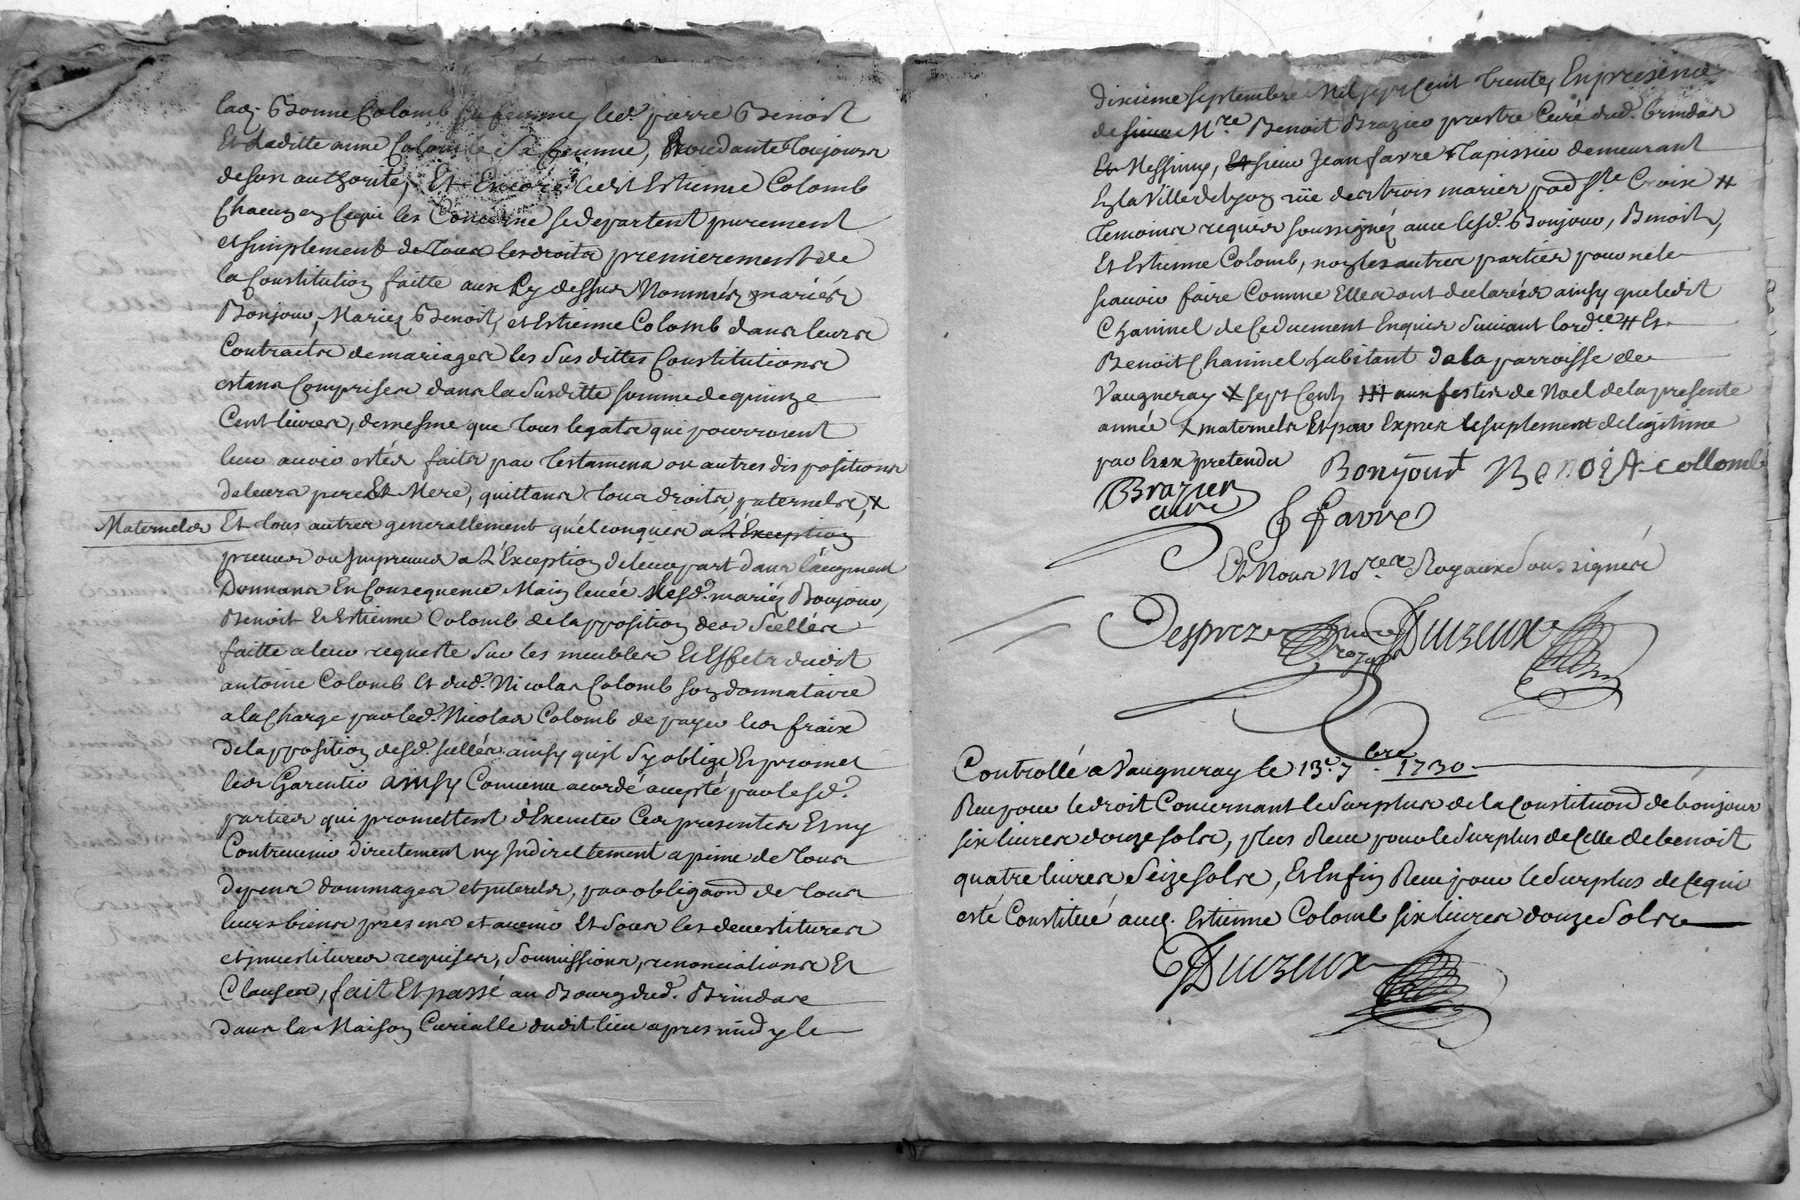 lad. Bonne Colomb sa femme, led. pierre Benoist
Et Laditte anne Colombe Sa femme, procedante Toujours
de son authorité, Et Encore ledit Estienne Colomb
Chacun en ce qui les Concerne se departent purement
et simplement de Tous les droits premierement de
la Constitution faitte aux Cy dessus Nommés mariés
Bonjour, Mariez Benoist, et Estienne Colomb dans leurs
Contracts de mariages les Susdittes Constitutions
estans Comprises dans la Susditte somme de quinze
Cent livres, de mesme que Tous legats qui pourroient
leur avoir estés faits par Testamens ou autres dispositions
de leurs pere Et Mere, quittans Tous droits, paternels, x
Maternels Et Tous autres generallement quelconques a L'Exception
preveus ou Impreveus a L'Exception de leur part dans l'augment
Donnans En Consequence Main levée lesd. mariez Bonjour,
Benoit Et Estienne Colomb de lapposition des Scellés
faitte a leur requeste Sur les meubles Et Effets dudit
antoine Colomb Et dud. Nicolas Colomb son donnataire
a la Charge par led. Nicolas Colomb de payer les fraix
de lapposition desd. scellés ainsy quil Sy oblige Et promet
les Garentir ainsy Convenu acordé accepté par lesd.
parties qui promettent d'Executer Ces presentes Et ny
Contrevenir directement ny Indirectement a peine de Tous
depens dommages et interets, par obligaon de Tous
leurs biens presens et avenir Et Sous les devestitures
et investitures requises, Soumissions, renonciations Et
Clauses, fait Et passé au Bourg dud. Brindas
dans la Maison Curialle dudit lieu apres midy le
dixieme septembre Mil sept Cent Trente, En presence
de sieur Mre Benoit Brazier prestre Curé dud. brindas
Et Messimy, Et sieur Jean favre Tapissier demeurant
En la Ville de Lyon rüe des trois maries pad Ste Croix #
Temoins requis soussignéz avec lesd. Bonjour, Benoist,
Et Estienne Colomb, non les autres parties pour ne le
scavoir faire Comme Elles ont declarées ainsy que ledit
Chaninel de Ce duement Enquis Suivant lordce # Et
Benoit Chaninel habitant de la parroisse de
Vaugneray X sept Cent, ### aux festes de Noel de la presente
année X maternels Et par Exprès le suplement de legitime
par Eux pretendu Bonjour Benoist e collomb
Brazier
curé
J favre
Et Nous Nores Royaux Soussignés
Desprez Duvzeux
Controllé a Vaugneray le 13e. 7bre. 1730.
Reçu pour le droit Concernant le Surplus de la Constituond de bonjour
six livres douze sols, plus Reçu pour le Surplus de Celle de benoit
quatre livres Seize sols, Et Enfin Reçu pour le Surplus de Ce qui
esté Constitué aud. Estienne Colomb six livres douze Sols
Duvzeux